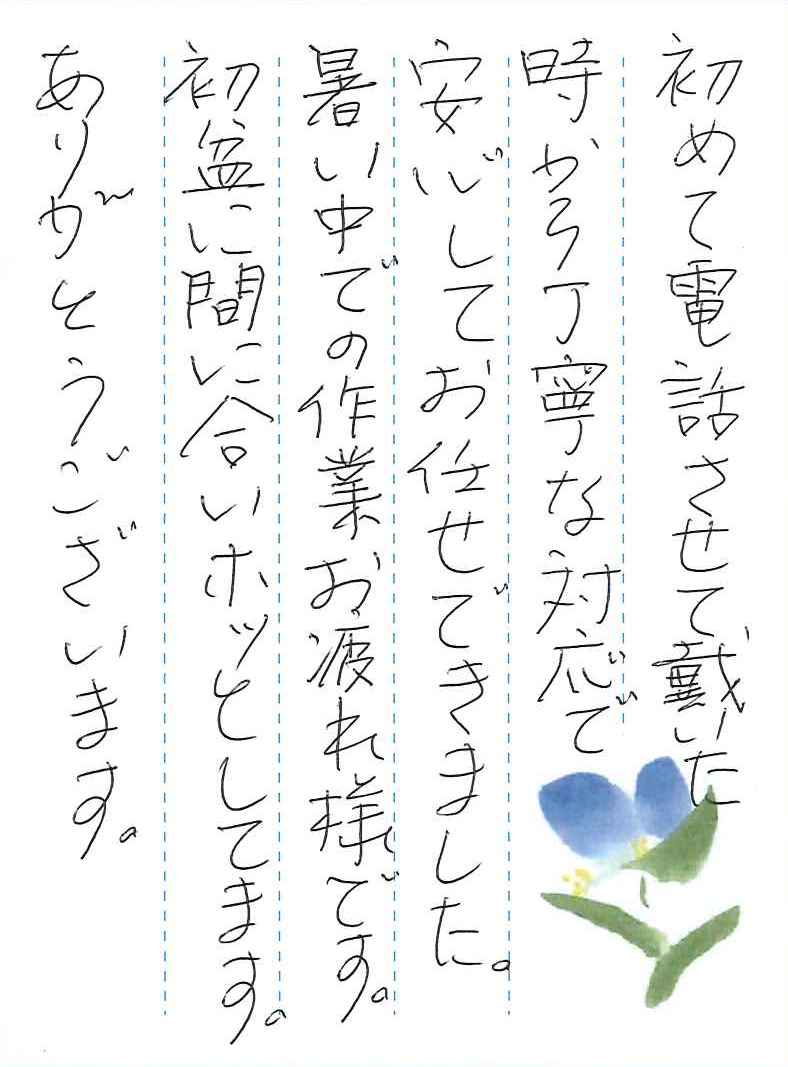 初めて電話させて戴いた
時から丁寧な対応で
安心してお任せできました。
暑い中での作業お疲れ様です。
初盆に間に合いホッとしてます。
ありがとうございます。